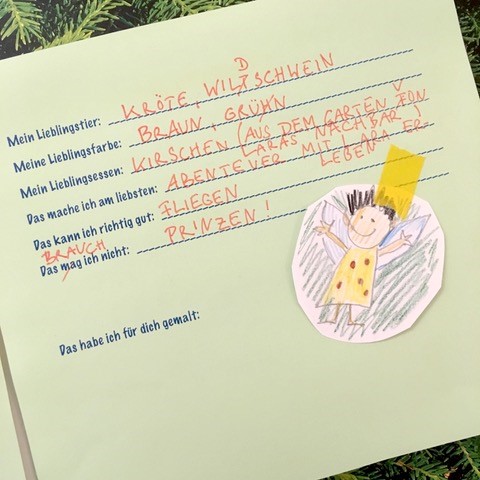 Mein Lieblingstier: KRÖTE, WILDSCHWEIN
Meine Lieblingsfarbe: BRAUN, GRÜHN
Mein Lieblingsessen: KIRSCHEN (AUS DEM GARTEN VON
LARAS NACHBAR)
Das mache ich am liebsten: ABENTEUER MIT LARA ER
LEBEN
Das kann ich richtig gut: FLIEGEN
BRAUCH
Das mag ich nicht: PRINZEN!
Das habe ich für dich gemalt: